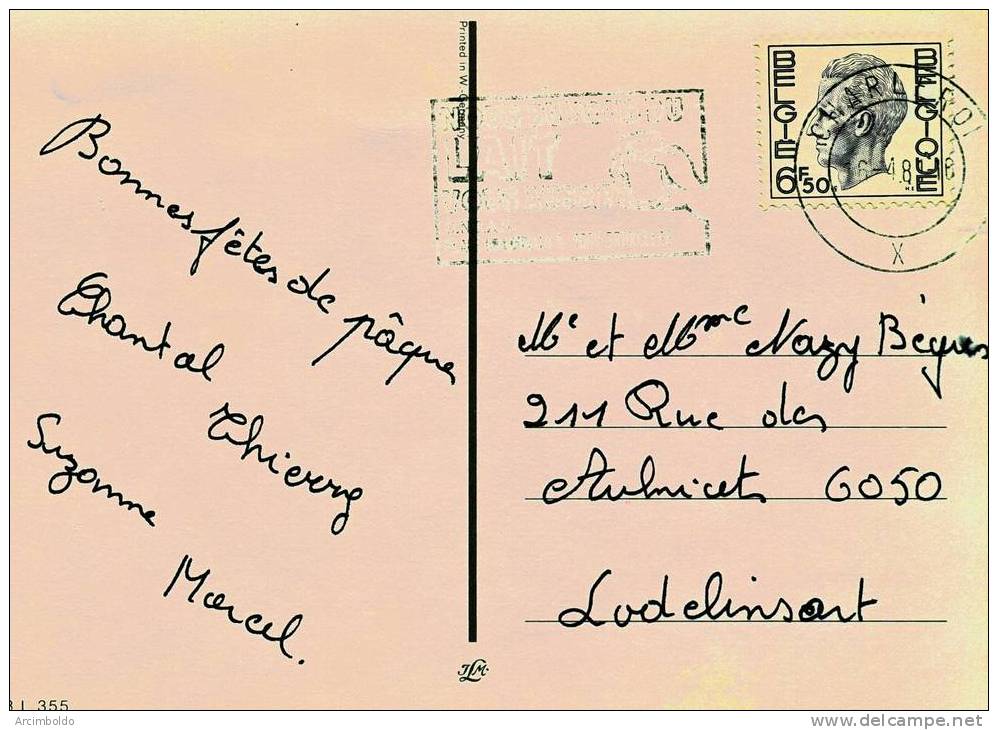 Printed in W.-Germany
BELGIE
BELGIQUE
6F50
CHARLEROI
X
LAIT
Bonnes fêtes de pâques
Chantal
Thierry
Suzanne
Marcel.
Mr et Mme Nazy Bègues
211 Rue des
Aulnicets 6050
Lodelinsart
JLM
355
Arcimboldo
www.delcampe.net